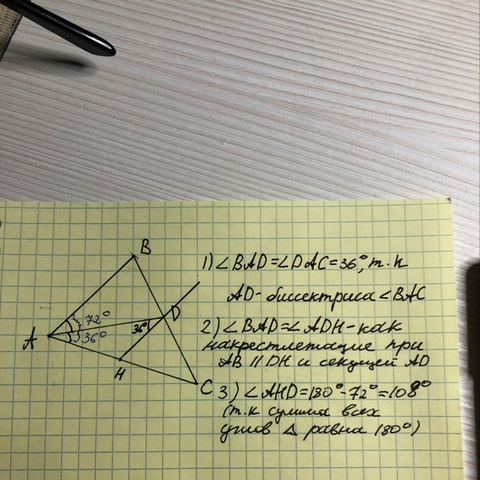 B
1) ∠BAD=∠DAC=36°, т.к
AD-биссектриса ∠BAC
72°
D
36°
A
36°
2) ∠BAD=∠ADH-как
накрестлежащие при
AB || DH и секущей AD
H
C
3) ∠AHD=180°-72°=108°
(т.к сумма всех
углов △ равна 180°)